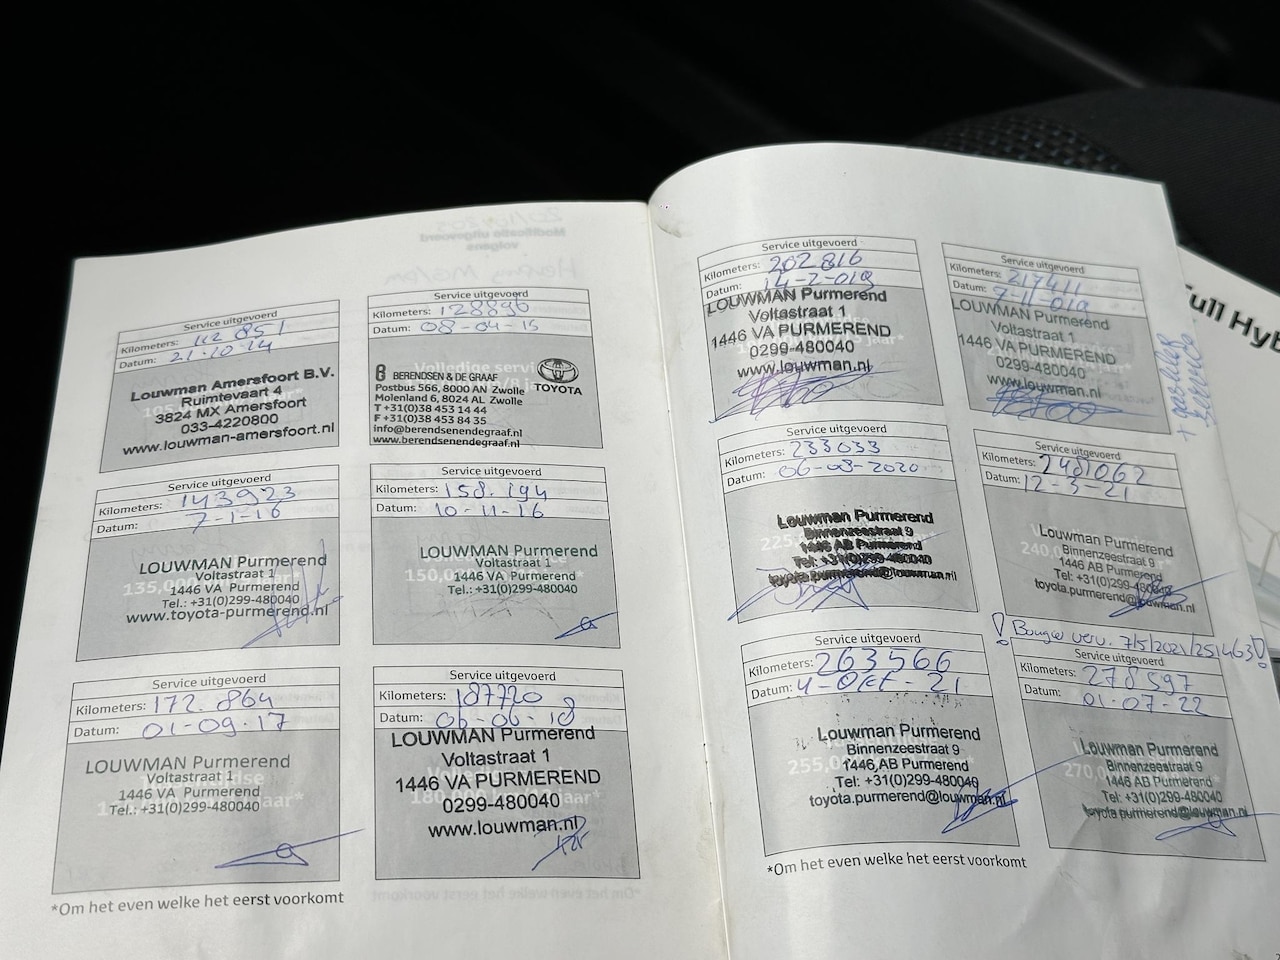 Service uitgevoerd
Kilometers: 112 851
Datum: 21-10-14
Louwman Amersfoort B.V.
Ruimtevaart 4
3824 MX Amersfoort
033-4220800
www.louwman-amersfoort.nl
Service uitgevoerd
Kilometers: 128896
Datum: 08-04-15
BERENDSEN & DE GRAAF
TOYOTA
Postbus 566, 8000 AN Zwolle
Molenland 6, 8024 AL Zwolle
T +31(0)38 453 14 44
F +31(0)38 453 84 35
info@berendsenendegraaf.nl
www.berendsenendegraaf.nl
Service uitgevoerd
Kilometers: 143923
Datum: 7-1-16
LOUWMAN Purmerend
Voltastraat 1
1446 VA Purmerend
Tel.: +31(0)299-480040
www.toyota-purmerend.nl
Service uitgevoerd
Kilometers: 158.194
Datum: 10-11-16
LOUWMAN Purmerend
Voltastraat 1
1446 VA Purmerend
Tel.: +31(0)299-480040
Service uitgevoerd
Kilometers: 172.864
Datum: 01-09-17
LOUWMAN Purmerend
Voltastraat 1
1446 VA Purmerend
Tel.: +31(0)299-480040
Service uitgevoerd
Kilometers: 187720
Datum: 06-06-18
LOUWMAN Purmerend
Voltastraat 1
1446 VA PURMEREND
0299-480040
www.louwman.nl
*Om het even welke het eerst voorkomt
Service uitgevoerd
Kilometers: 202816
Datum: 14-2-019
LOUWMAN Purmerend
Voltastraat 1
1446 VA PURMEREND
0299-480040
www.louwman.nl
Service uitgevoerd
Kilometers: 217411
Datum: 7-11-019
LOUWMAN Purmerend
Voltastraat 1
1446 VA PURMEREND
0299-480040
www.louwman.nl
Service uitgevoerd
Kilometers: 233033
Datum: 06-08-2020
Louwman Purmerend
Binnenzeestraat 9
1446 AB Purmerend
Tel: +31(0)299-480040
toyota.purmerend@louwman.nl
Service uitgevoerd
Kilometers: 2481062
Datum: 12-3-21
Louwman Purmerend
Binnenzeestraat 9
1446 AB Purmerend
Tel: +31(0)299-480040
toyota.purmerend@louwman.nl
Service uitgevoerd
Kilometers: 263566
Datum: 4-Okt-21
Louwman Purmerend
Binnenzeestraat 9
1446 AB Purmerend
Tel: +31(0)299-480040
toyota.purmerend@louwman.nl
! Bougie verv. 7/5/2021/251463!
Service uitgevoerd
Kilometers: 278597
Datum: 01-07-22
Louwman Purmerend
Binnenzeestraat 9
1446 AB Purmerend
Tel: +31(0)299-480040
toyota.purmerend@louwman.nl
*Om het even welke het eerst voorkomt
Full Hyb